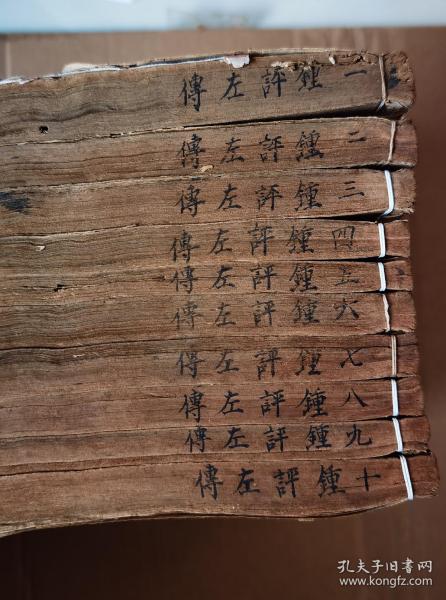 一鍾評左傳
二鍾評左傳
三鍾評左傳
四鍾評左傳
五鍾評左傳
六鍾評左傳
七鍾評左傳
八鍾評左傳
九鍾評左傳
十鍾評左傳
孔夫子旧书网
www.kongfz.com